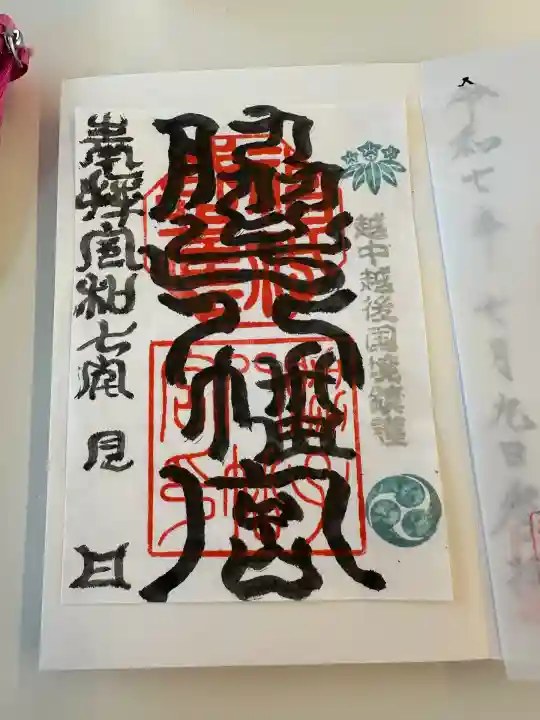 令和七年 七月九日
越中越後国境鎮護
脇子八幡宮
奉拝令和七年 月 日